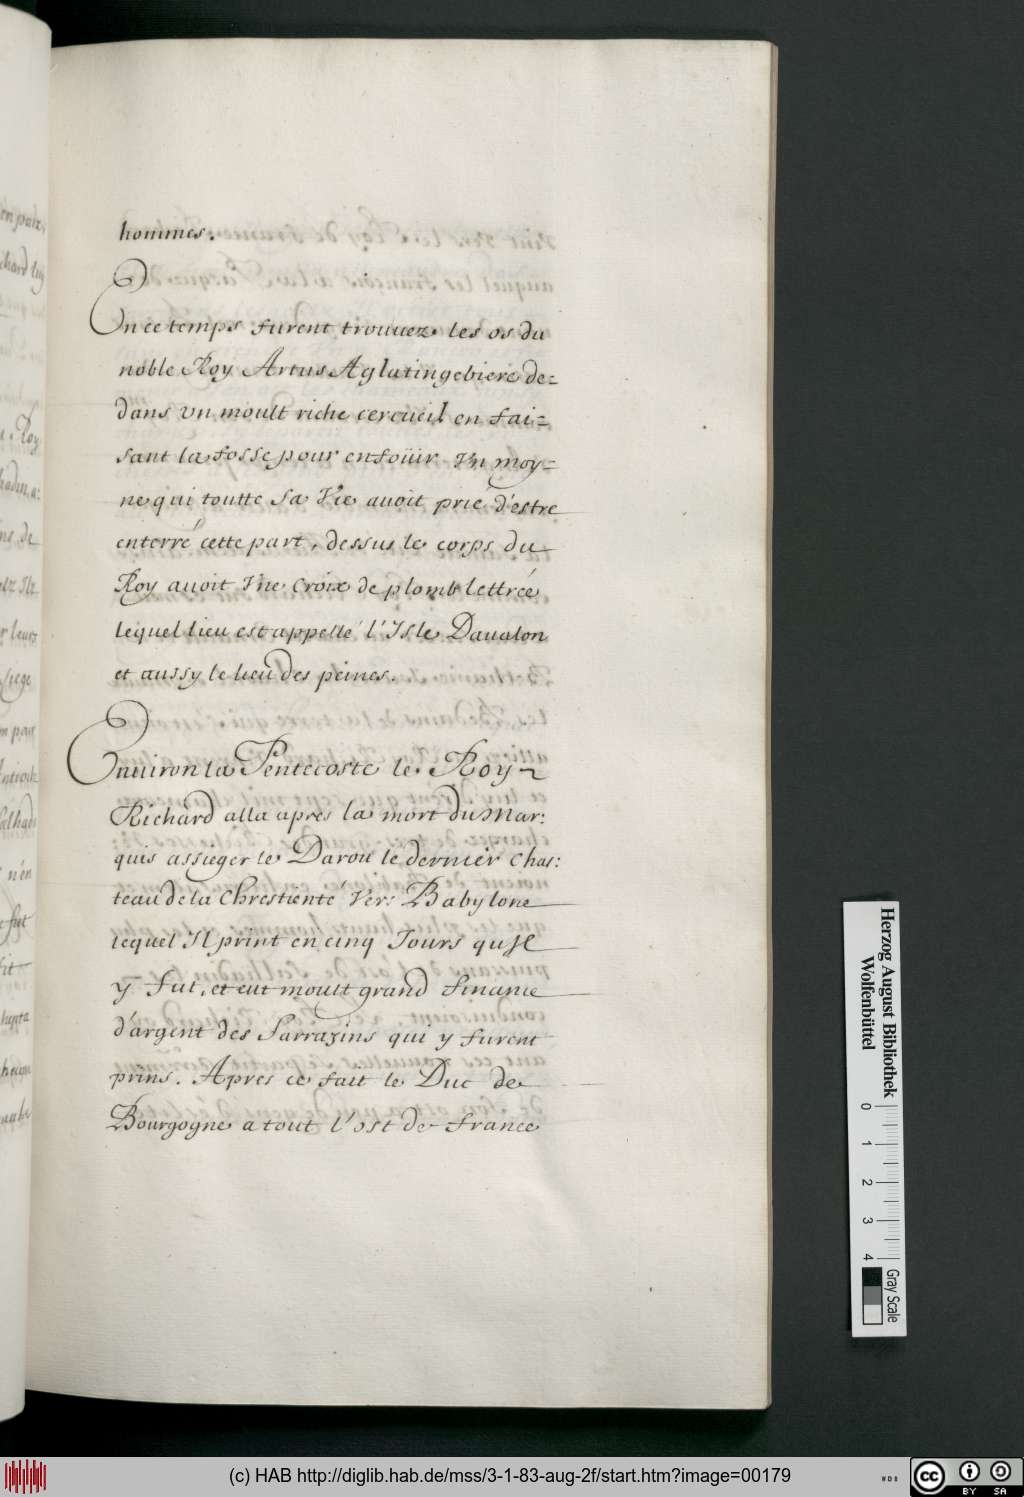 hommes.
En ce temps furent trouuez les os du
noble Roy Artus Aglatingebiere de=
dans vn moult riche cercueil en fai=
sant la fosse pour enfoüir vn moy=
ne qui toutte sa vie auoit prié d'estre
enterré cette part, dessus le corps du
Roy auoit vne croix de plomb lettrée
lequel lieu est appellé l'Isle Daualon
et aussy le lieu des peines.
Enuiron la Pentecoste le Roy
Richard alla apres la mort du Mar:
quis assieger le Darou le dernier chas:
teau de la Chrestienté vers Babylone
lequel Il print en cinq Jours qu'Il
y fut, et eut moult grand finance
d'argent des Sarrazins qui y furent
prins. Apres ce fait le Duc de
Bourgogne a tout l'ost de france
Herzog August Bibliothek
Wolfenbüttel
0 1 2 3 4
Gray Scale
(c) HAB http://diglib.hab.de/mss/3-1-83-aug-2f/start.htm?image=00179
cc BY SA